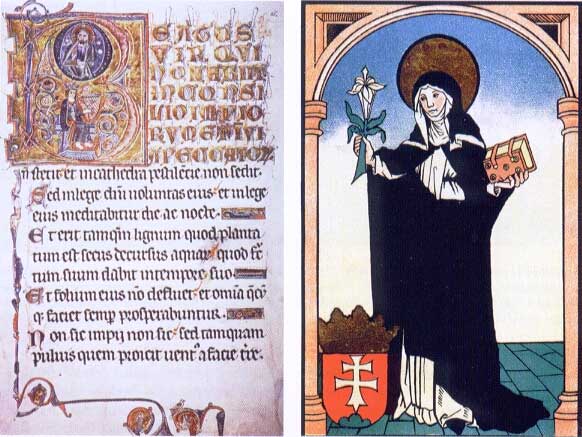 BEATUS
VIR QUI
NON ABIIT
IN CONSI
LIO IMPIO
RUM ET I VI
PECCATOR
n stetit et in cathedra pestilecie non sedit.
Sed in lege dni voluntas eius et in lege
eius meditabitur die ac nocte.
Et erit tamqm lignum quod planta
tum est secus decursus aquar quod fc
tum suum dabit in tempore suo.
Et folium eius no defluet et omia qcq
faciet semp prosperabuntur.
Non sic impij non sic sed tamquam
puluis quem proicit uent' a facie tre.